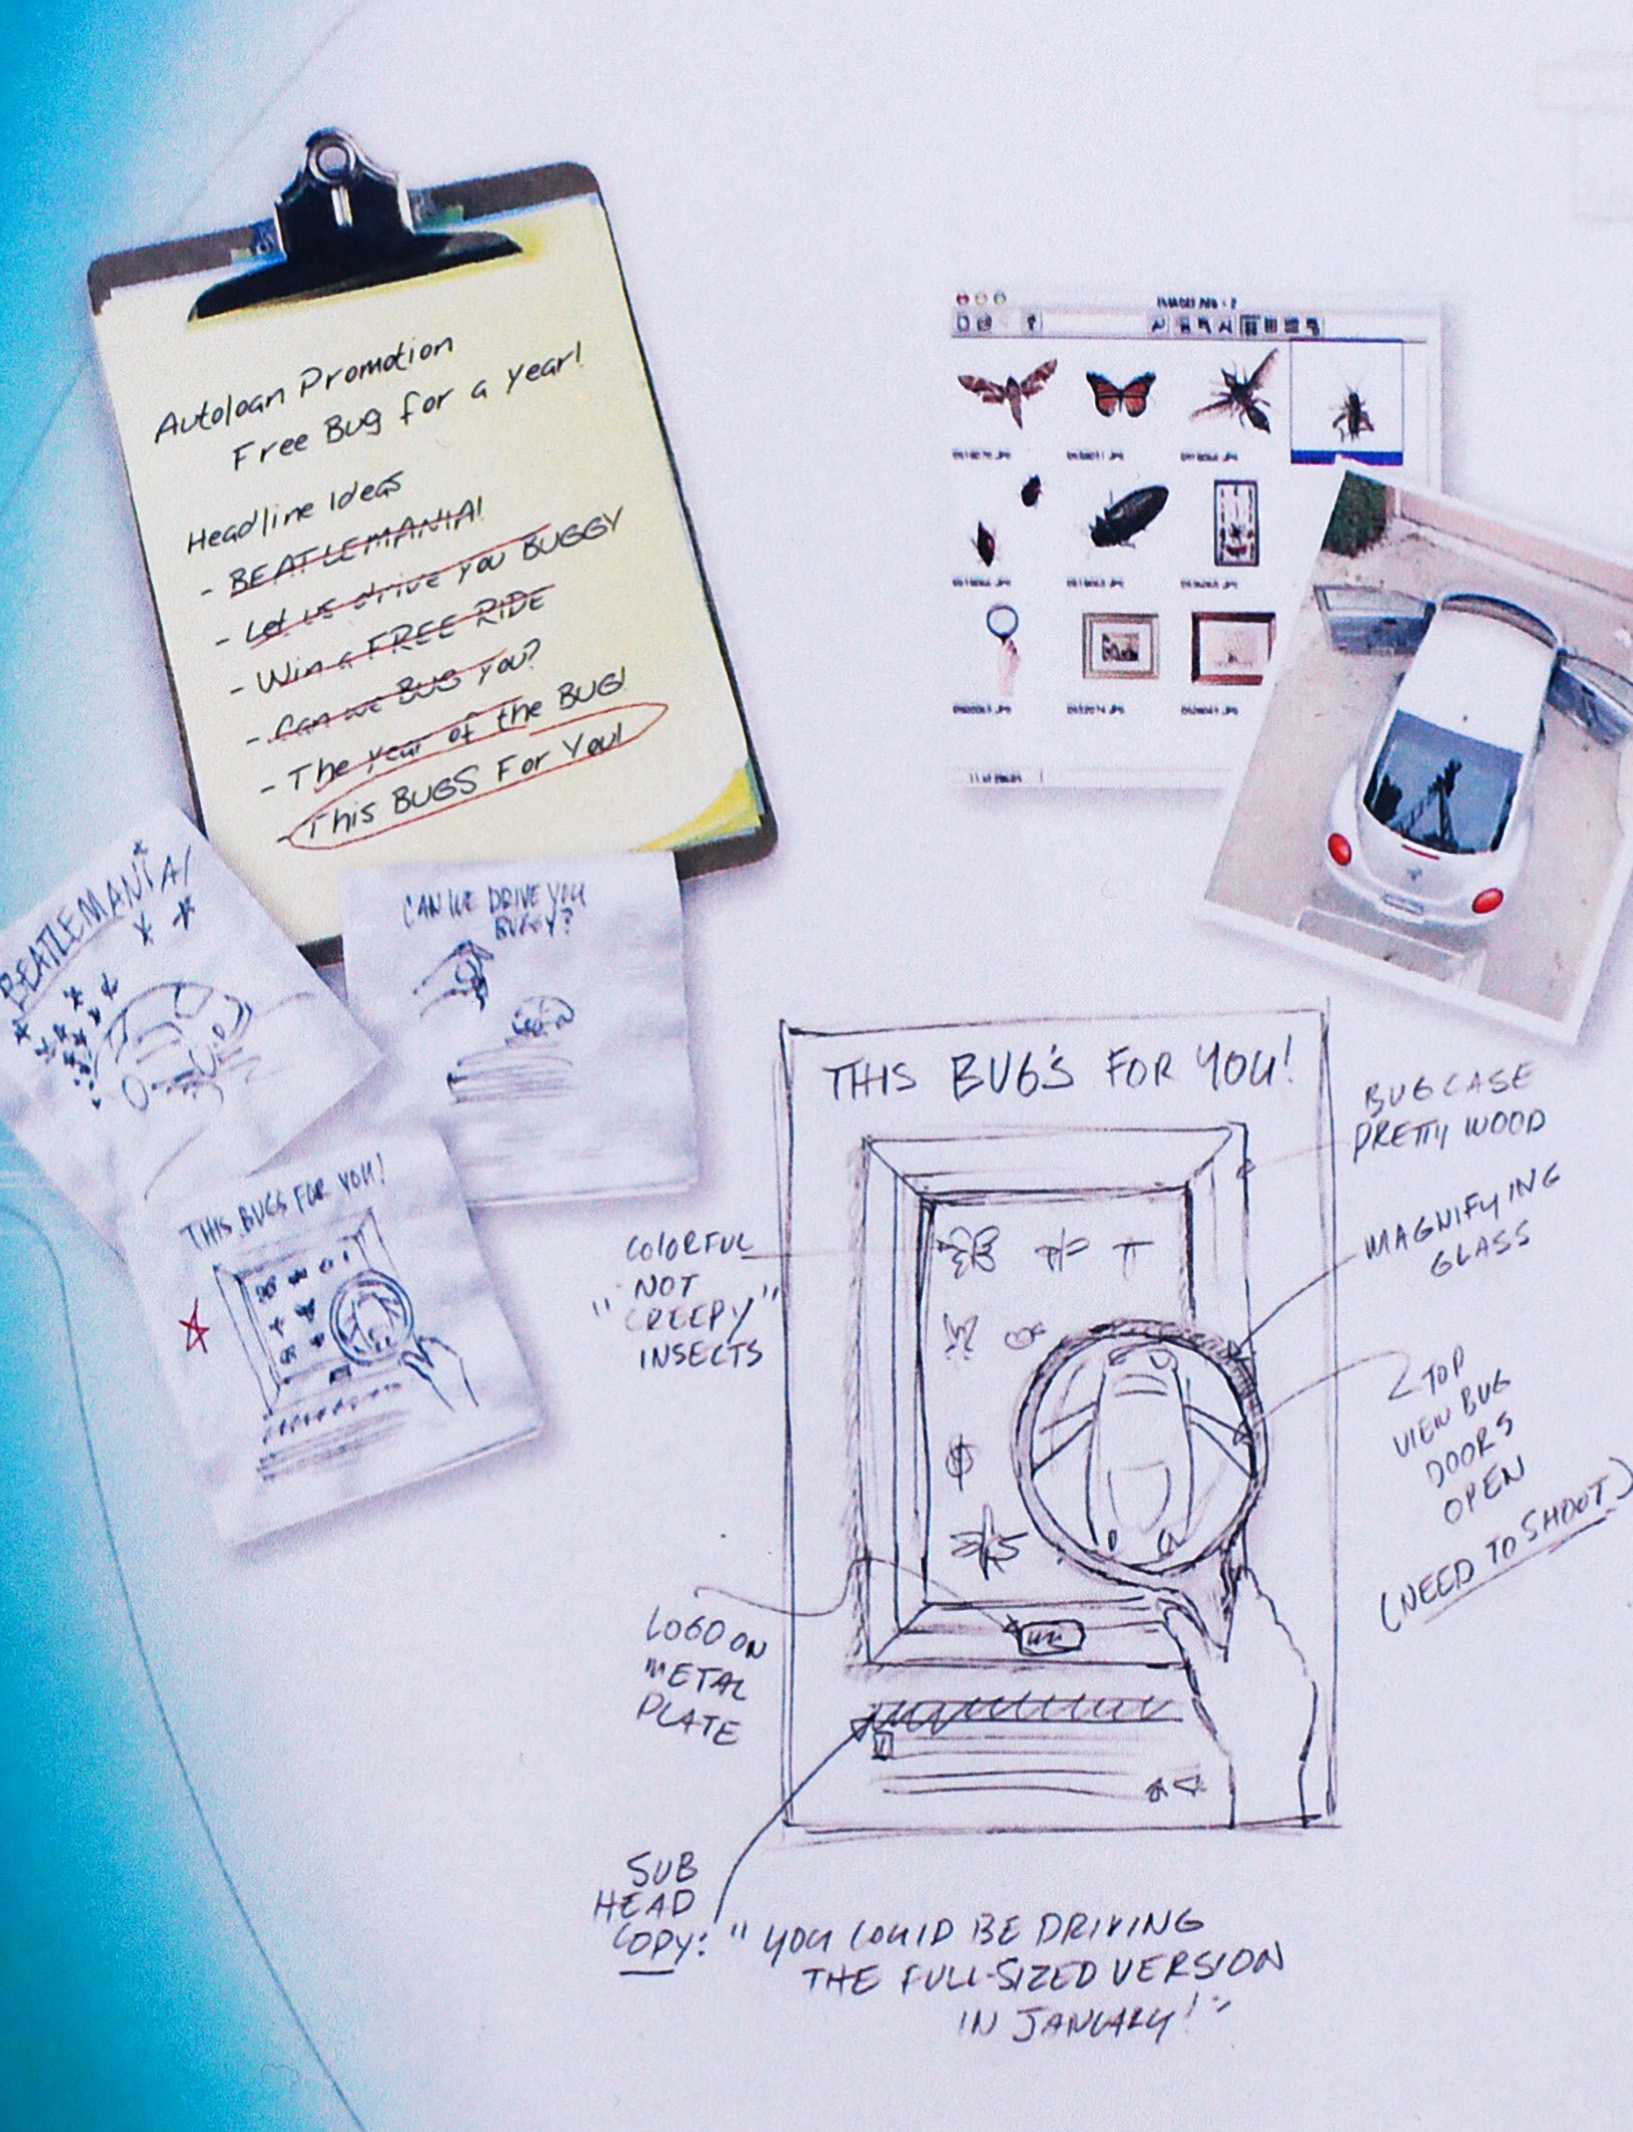 Autoloan Promotion
Free Bug for a year!
Headline Ideas
- BEATLEMANIA!
- Let us drive you BUGGY
- Win a FREE RIDE
- Can we BUG you?
- The Year of the BUG!
- This BUGS For You!
BEATLEMANIA!
CAN WE DRIVE YOU
BUGGY?
THIS BUGS FOR YOU!
THIS BUG'S FOR YOU!
BUG CASE
PRETTY WOOD
MAGNIFYING
GLASS
COLORFUL
NOT
"CREEPY"
INSECTS
TOP
VIEW BUG
DOORS
OPEN
(NEED TO SHOOT)
LOGO ON
METAL
PLATE
SUB
HEAD
COPY: "YOU COULD BE DRIVING
THE FULL-SIZED VERSION
IN JANUARY!"